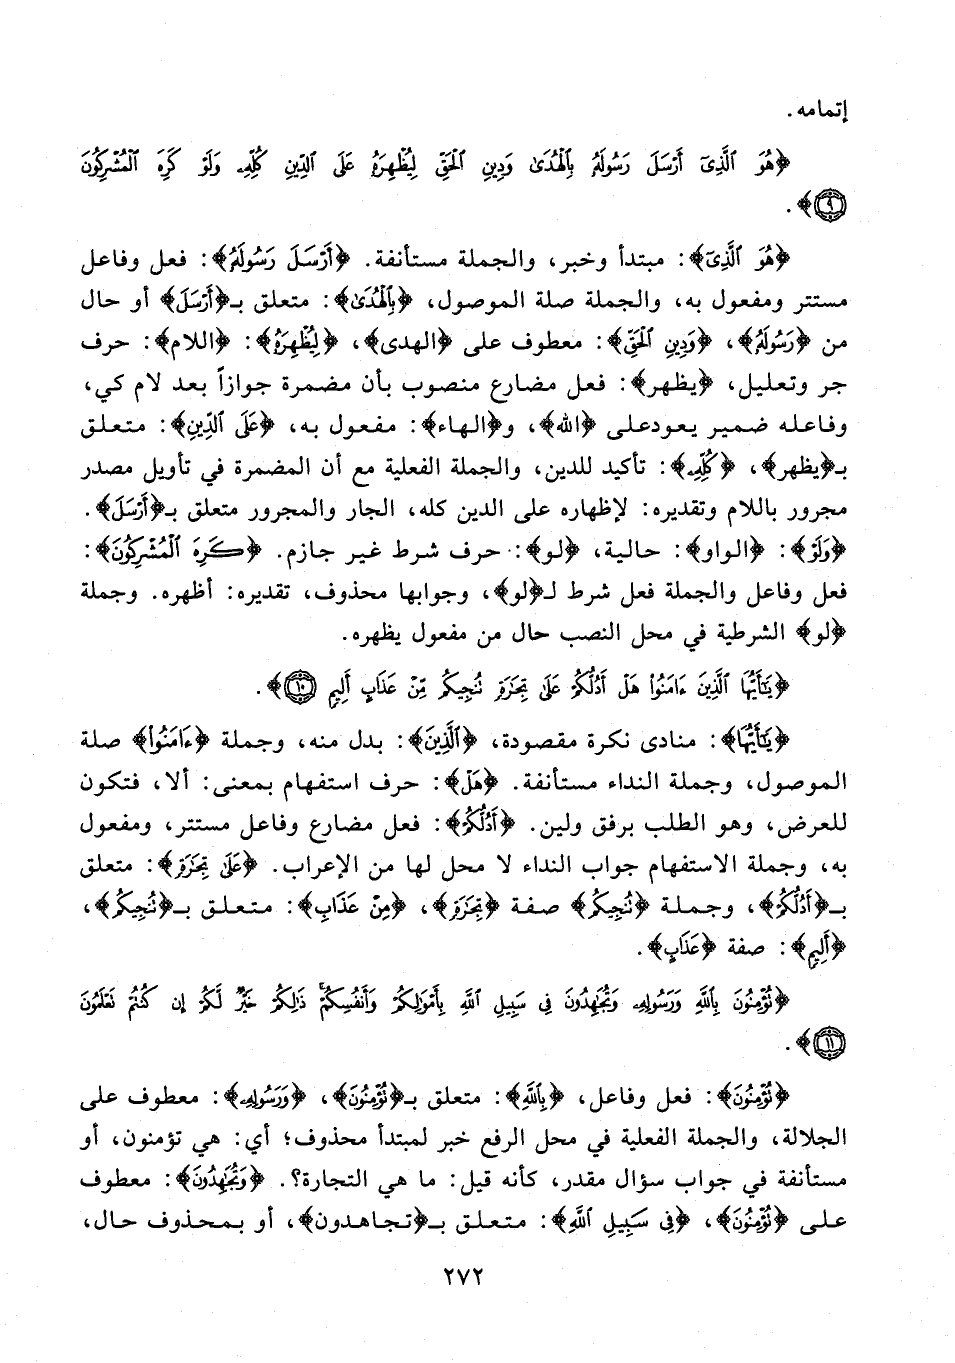 إتمامه.
﴿هُوَ ٱلَّذِىٓ أَرْسَلَ رَسُولَهُۥ بِٱلْهُدَىٰ وَدِينِ ٱلْحَقِّ لِيُظْهِرَهُۥ عَلَى ٱلدِّينِ كُلِّهِۦ وَلَوْ كَرِهَ ٱلْمُشْرِكُونَ
٩﴾.
﴿هُوَ ٱلَّذِىٓ﴾: مبتدأ وخبر، والجملة مستأنفة. ﴿أَرْسَلَ رَسُولَهُۥ﴾: فعل وفاعل
مستتر ومفعول به، والجملة صلة الموصول، ﴿بِٱلْهُدَىٰ﴾: متعلق بـ﴿أَرْسَلَ﴾ أو حال
من ﴿رَسُولَهُۥ﴾، ﴿وَدِينِ ٱلْحَقِّ﴾: معطوف على ﴿الهدى﴾، ﴿لِيُظْهِرَهُۥ﴾: ﴿اللام﴾: حرف
جر وتعليل، ﴿يظهر﴾: فعل مضارع منصوب بأن مضمرة جوازاً بعد لام كي،
وفاعله ضمير يعودعلى ﴿الله﴾، و﴿الهاء﴾: مفعول به، ﴿عَلَى ٱلدِّينِ﴾: متعلق
بـ﴿يظهر﴾، ﴿كُلِّهِۦ﴾: تأكيد للدين، والجملة الفعلية مع أن المضمرة في تأويل مصدر
مجرور باللام وتقديره: لإظهاره على الدين كله، الجار والمجرور متعلق بـ﴿أَرْسَلَ﴾.
﴿وَلَوْ﴾: ﴿الواو﴾: حالية، ﴿لو﴾: حرف شرط غير جازم. ﴿كَرِهَ ٱلْمُشْرِكُونَ﴾:
فعل وفاعل والجملة فعل شرط لـ﴿لو﴾، وجوابها محذوف، تقديره: أظهره. وجملة
﴿لو﴾ الشرطية في محل النصب حال من مفعول يظهره.
﴿يَٰٓأَيُّهَا ٱلَّذِينَ ءَامَنُوا۟ هَلْ أَدُلُّكُمْ عَلَىٰ تِجَٰرَةٍ تُنجِيكُم مِّنْ عَذَابٍ أَلِيمٍ ١٠﴾.
﴿يَٰٓأَيُّهَا﴾: منادى نكرة مقصودة، ﴿ٱلَّذِينَ﴾: بدل منه، وجملة ﴿ءَامَنُوا۟﴾ صلة
الموصول، وجملة النداء مستأنفة. ﴿هَلْ﴾: حرف استفهام بمعنى: ألا، فتكون
للعرض، وهو الطلب برفق ولين. ﴿أَدُلُّكُمْ﴾: فعل مضارع وفاعل مستتر، ومفعول
به، وجملة الاستفهام جواب النداء لا محل لها من الإعراب. ﴿عَلَىٰ تِجَٰرَةٍ﴾: متعلق
بـ﴿أَدُلُّكُمْ﴾، وجملة ﴿تُنجِيكُم﴾ صفة ﴿تِجَٰرَةٍ﴾، ﴿مِّنْ عَذَابٍ﴾: متعلق بـ﴿تُنجِيكُم﴾،
﴿أَلِيمٍ﴾: صفة ﴿عَذَابٍ﴾.
﴿تُؤْمِنُونَ بِٱللَّهِ وَرَسُولِهِۦ وَتُجَٰهِدُونَ فِى سَبِيلِ ٱللَّهِ بِأَمْوَٰلِكُمْ وَأَنفُسِكُمْ ۚ ذَٰلِكُمْ خَيْرٌ لَّكُمْ إِن كُنتُمْ تَعْلَمُونَ
١١﴾.
﴿تُؤْمِنُونَ﴾: فعل وفاعل، ﴿بِٱللَّهِ﴾: متعلق بـ﴿تُؤْمِنُونَ﴾، ﴿وَرَسُولِهِۦ﴾: معطوف على
الجلالة، والجملة الفعلية في محل الرفع خبر لمبتدأ محذوف؛ أي: هي تؤمنون، أو
مستأنفة في جواب سؤال مقدر، كأنه قيل: ما هي التجارة؟. ﴿وَتُجَٰهِدُونَ﴾: معطوف
على ﴿تُؤْمِنُونَ﴾، ﴿فِى سَبِيلِ ٱللَّهِ﴾: متعلق بـ﴿تجاهدون﴾، أو بمحذوف حال،
٢٧٢